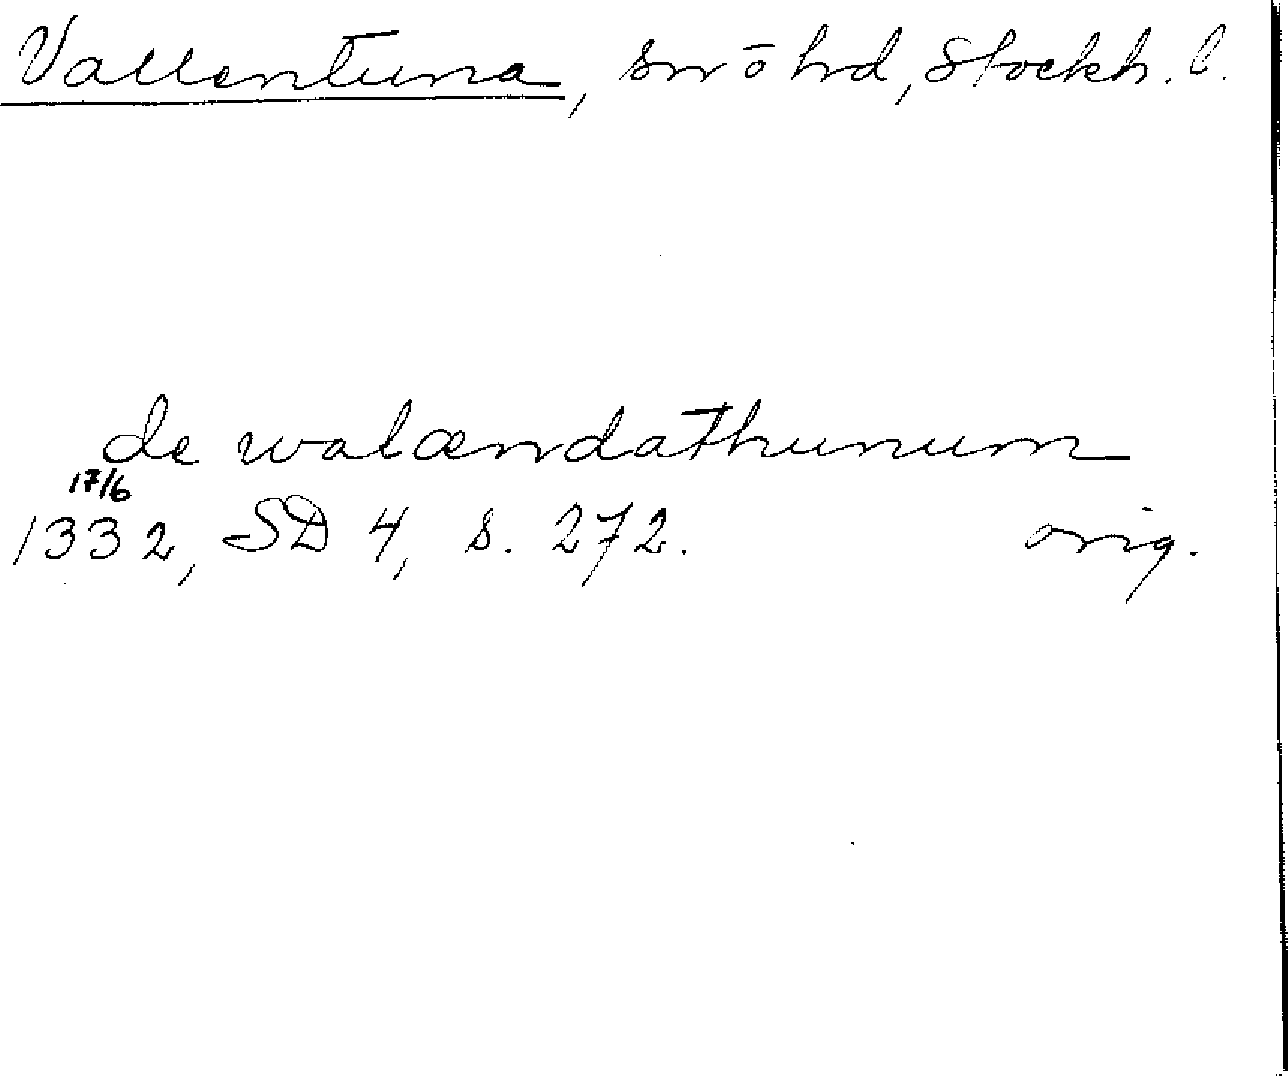 Vallentuna, sn o hd, Stockh. l.
de walændathunum
17/6
1332, SD 4, s. 272. orig.